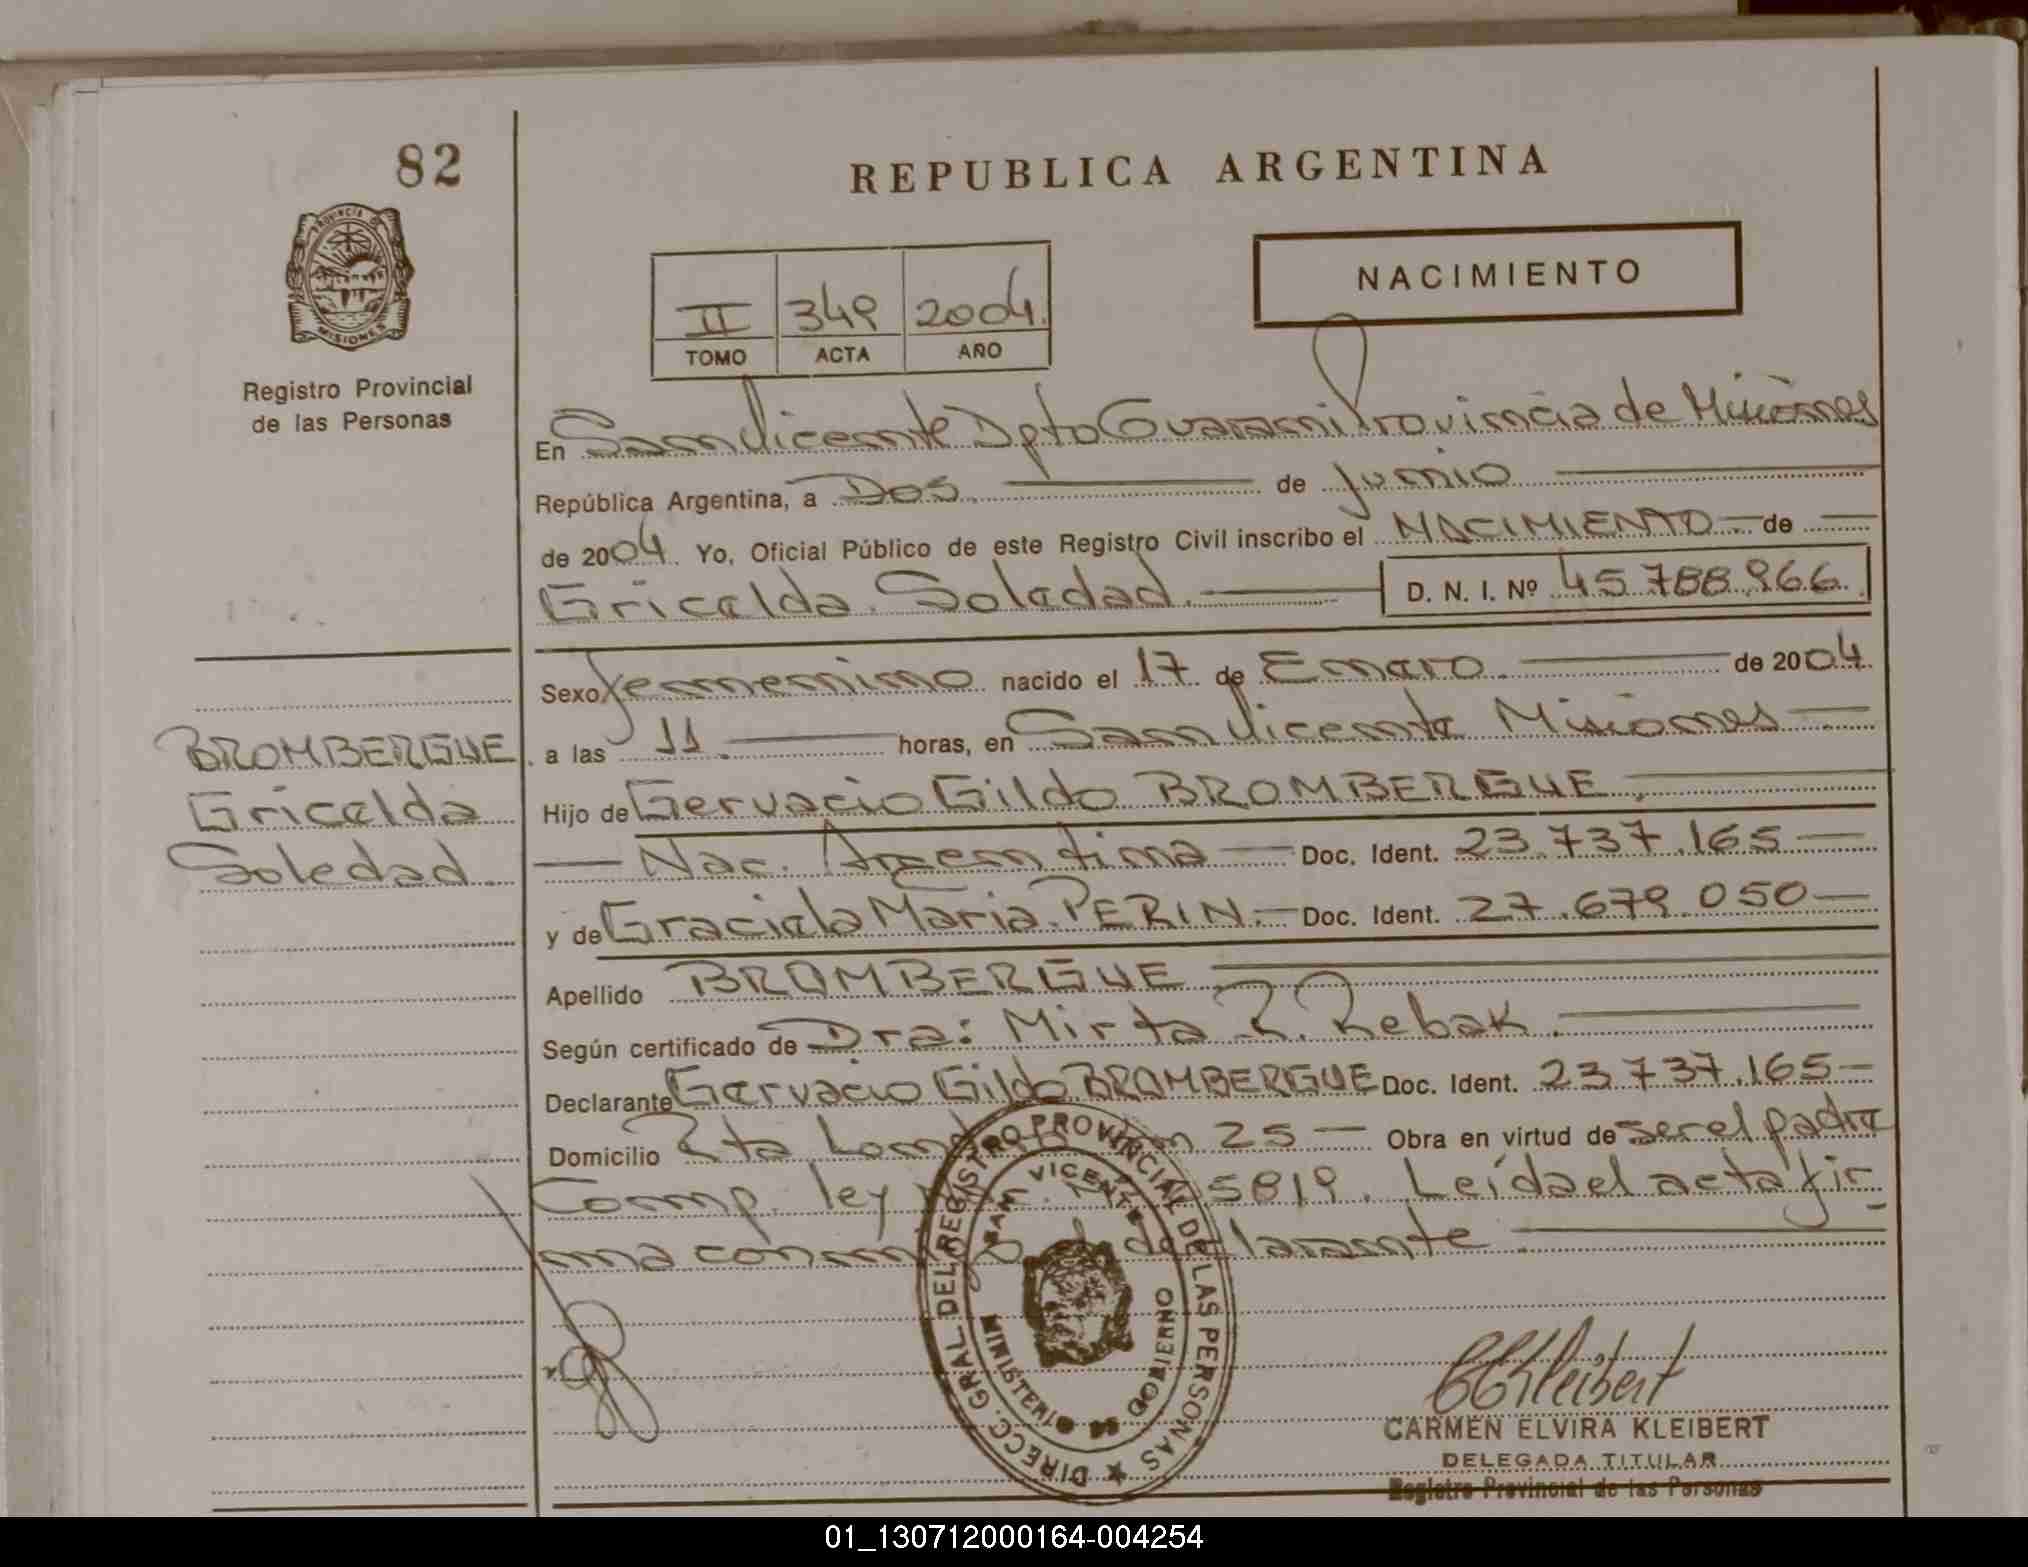 82
REPUBLICA ARGENTINA
PROVINCIA DE
MISIONES
Registro Provincial
de las Personas
NACIMIENTO
II 349 2004.
TOMO ACTA AÑO
En San Vicente Dpto Guarani Provincia de Misiones
República Argentina, a Dos de Junio
de 2004. Yo, Oficial Público de este Registro Civil inscribo el NACIMIENTO de
Gricelda Soledad. D. N. I. Nº 45.788.966.
Sexo femenino nacido el 17 de Enero. de 2004.
a las 11. horas, en San Vicente Misiones
Hijo de Gervacio Gildo BROMBERGUE.
Nac. Argentina Doc. Ident. 23.737.165
y de Graciela Maria PERIN. Doc. Ident. 27.679.050
Apellido BROMBERGUE
Según certificado de Dra: Mirta R. Rebak.
Declarante Gervacio Gildo BROMBERGUE Doc. Ident. 23.737.165
Domicilio Rta 25 Obra en virtud de ser el padre
Comp. ley 5819. Leída el acta fir
ma conmigo el declarante
BROMBERGUE
Gricelda
Soledad.
DIRECC. GRAL DEL REGISTRO PROVINCIAL DE LAS PERSONAS
SAN VICENTE
MINISTERIO DE GOBIERNO
CKleibert
CARMEN ELVIRA KLEIBERT
DELEGADA TITULAR
Registro Provincial de las Personas
01_130712000164-004254